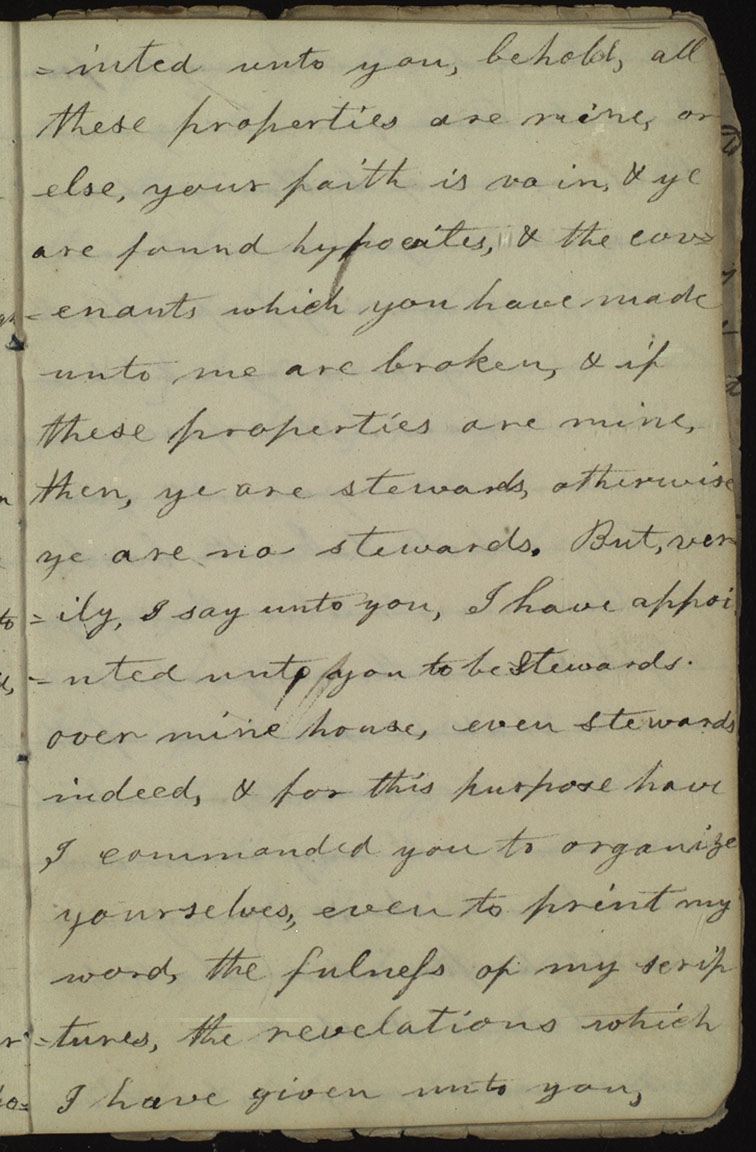 = inted unto you, behold, all
these properties are mine, or
else, your faith is vain, & ye
are found hypocrites, & the cov=
= enants which you have made
unto me are broken, & if
these properties are mine,
then, ye are stewards, otherwise
ye are no stewards. But, ver
= ily, I say unto you, I have appoi
= nted unto you to be Stewards.
over mine house, even stewards
indeed, & for this purpose have
I commanded you to organize
yourselves, even to print my
word, the fulness of my scrip
=tures, the revelations which
I have given unto you,